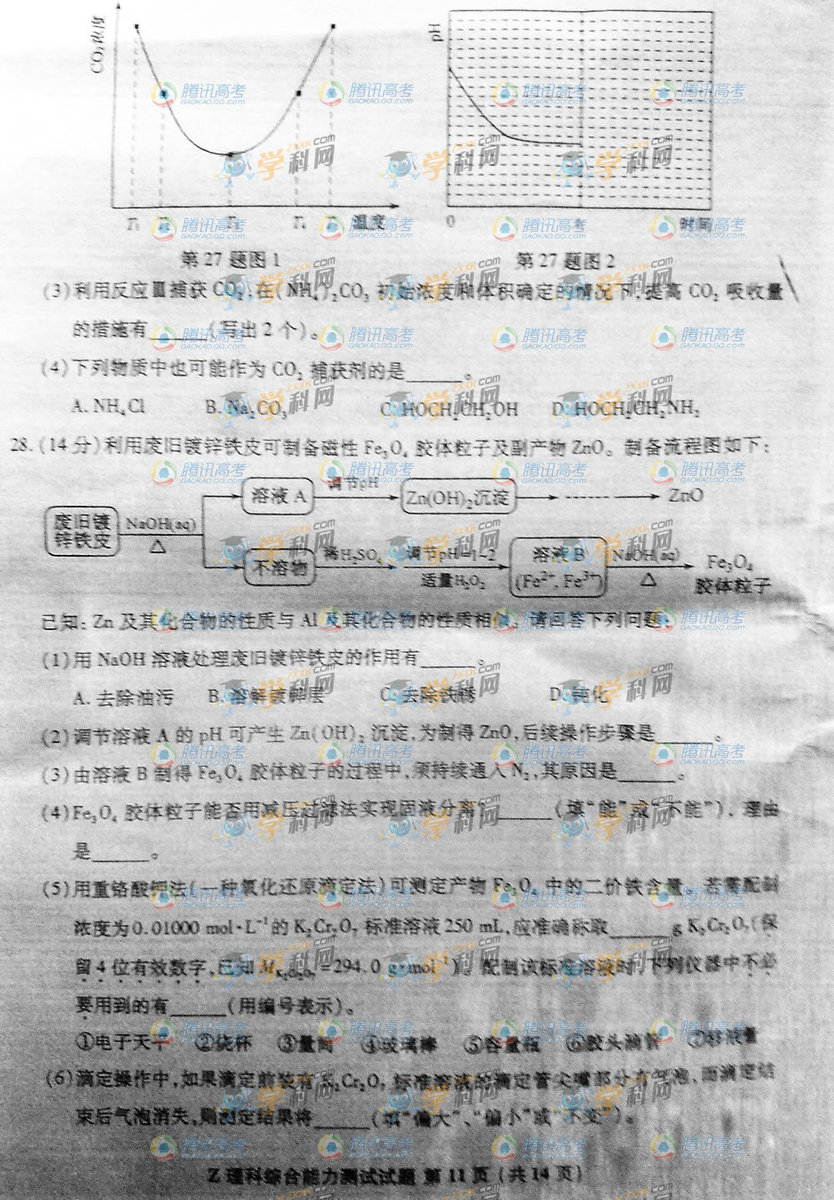 CO₂浓度
T₁ T₂ T₃ T₄ T₅ 温度
pH
0 t₁ 时间
第27题图1
第27题图2
(3)利用反应Ⅲ捕获CO₂,在(NH₄)₂CO₃初始浓度和体积确定的情况下,提高CO₂吸收量
的措施有______(写出2个)。
(4)下列物质中也可能作为CO₂捕获剂的是_____。
A. NH₄Cl B. Na₂CO₃ C. HOCH₂CH₂OH D. HOCH₂CH₂NH₂
28.(14分)利用废旧镀锌铁皮可制备磁性Fe₃O₄胶体粒子及副产物ZnO。制备流程图如下:
废旧镀
锌铁皮
NaOH(aq)
△
溶液A
调节pH
Zn(OH)₂沉淀
ZnO
不溶物
稀H₂SO₄
调节pH=1~2
适量H₂O₂
溶液B
(Fe²⁺, Fe³⁺)
NaOH(aq)
△
Fe₃O₄
胶体粒子
已知:Zn及其化合物的性质与Al及其化合物的性质相似。请回答下列问题:
(1)用NaOH溶液处理废旧镀锌铁皮的作用有_____。
A. 去除油污 B. 溶解镀锌层 C. 去除铁锈 D. 钝化
(2)调节溶液A的pH可产生Zn(OH)₂沉淀,为制得ZnO,后续操作步骤是_____。
(3)由溶液B制得Fe₃O₄胶体粒子的过程中,须持续通入N₂,其原因是_____。
(4)Fe₃O₄胶体粒子能否用减压过滤法实现固液分离?_____(填“能”或“不能”),理由
是_____。
(5)用重铬酸钾法(一种氧化还原滴定法)可测定产物Fe₃O₄中的二价铁含量。若需配制
浓度为0.01000 mol·L⁻¹的K₂Cr₂O₇标准溶液250 mL,应准确称取_____g K₂Cr₂O₇(保
留4位有效数字,已知M K₂Cr₂O₇=294.0 g·mol⁻¹)。配制该标准溶液时,下列仪器中不必
要用到的有_____(用编号表示)。
①电子天平 ②烧杯 ③量筒 ④玻璃棒 ⑤容量瓶 ⑥胶头滴管 ⑦移液管
(6)滴定操作中,如果滴定前装有K₂Cr₂O₇标准溶液的滴定管尖嘴部分有气泡,而滴定结
束后气泡消失,则测定结果将_____(填“偏大”、“偏小”或“不变”)。
Z理科综合能力测试试题 第11页(共14页)